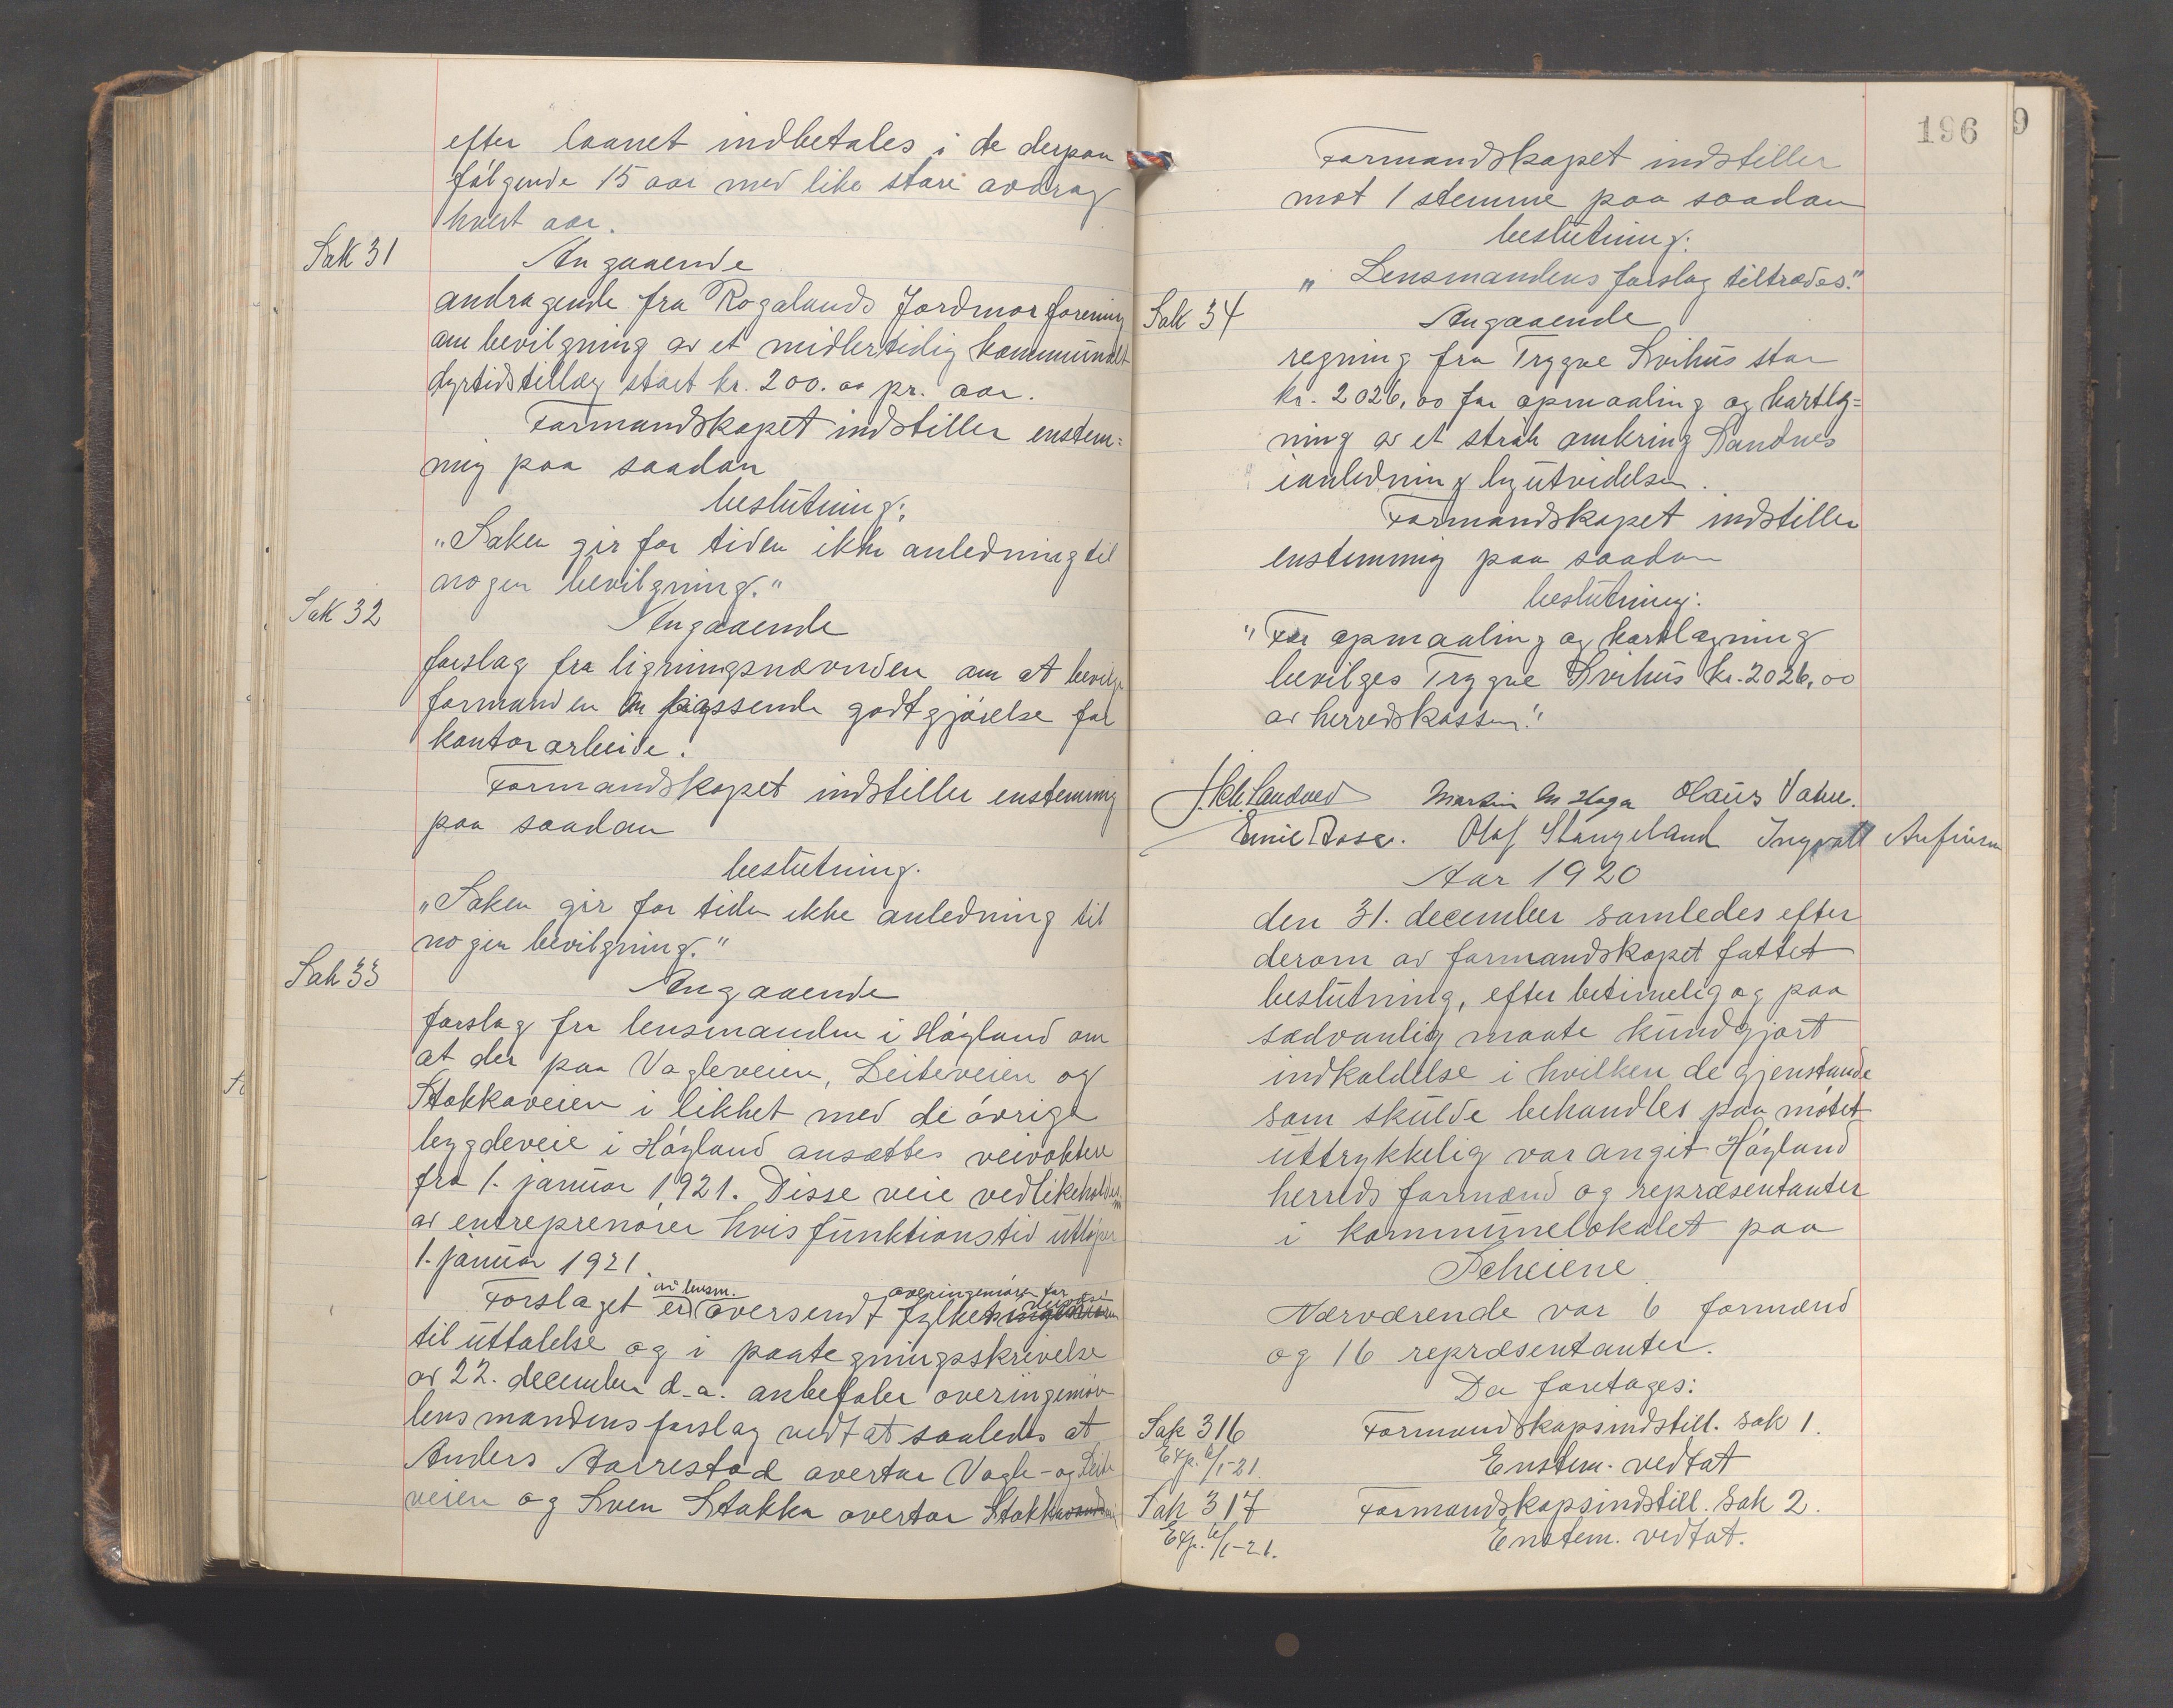 efter laanet indbetales i de derpaa
følgende 15 aar med like store avdrag
hvert aar.
Sak 31
Angaaende
andragende fra Rogalands Jordmorforening
om bevilgning av et midlertidig kommunalt
dyrtidstillæg stort kr. 200.00 pr. aar.
Formandskapet indstiller enstem=
mig paa saadan
beslutning:
"Saken gir for tiden ikke anledning til
nogen bevilgning."
Sak 32
Angaaende
forslag fra ligningsnævnden om at bevilge
formanden en passende godtgjørelse for
kontorarbeide.
Formandskapet indstiller enstemmig
paa saadan
beslutning.
"Saken gir for tiden ikke anledning til
nogen bevilgning."
Sak 33
Angaaende
forslag fra lensmanden i Høyland om
at der paa Vagleveien, Leiteveien og
Stokkaveien i likhet med de øvrige
bygdeveie i Høyland ansættes veivoktere
fra 1. januar 1921. Disse veie vedlikeholdes nu
av entreprenører hvis funktionstid utløper
1. januar 1921.
av lensm. overingeniøren for veivæsen
Forslaget er oversendt fylkets
til uttalelse og i paategningsskrivelse
av 22. december d.a. anbefaler overingeniøren
lensmandens forslag vedtat saaledes at
Anders Aarrestad overtar Vagle- og Leite
veien og Sven Stokka overtar Stokkaveien
196
9
Formandskapet indstiller
mot 1 stemme paa saadan
beslutning:
"Lensmandens forslag tiltrædes."
Sak 34
Angaaende
regning fra Trygve Svihus stor
kr. 2026,00 for opmaaling og kartlæg=
ning av et strøk omkring Sandnes
ianledning byutvidelsen.
Formandskapet indstiller
enstemmig paa saadan
beslutning:
"For opmaaling og kartlægning
bevilges Trygve Svihus kr. 2026,00
av herredskassen."
Martin M Haga Olaus Vatne.
Emil Aase. Olaf Stangeland Ingvald Aufinsen
Aar 1920
den 31. december samledes efter
derom av formandskapet fattet
beslutning, efter betimelig og paa
sædvanlig maate kundgjort
indkaldelse i hvilken de gjenstande
som skulde behandles paa møtet
uttrykkelig var angit Høyland
herreds formænd og repræsentanter
i kommunelokalet paa
Scheiene
Nærværende var 6 formænd
og 16 repræsentanter.
Da foretages:
Sak 316
Formandskapsindstill. sak 1.
Exp. 6/1-21.
Enstem. vedtat
Sak 317
Formandskapsindstill. sak 2.
Exp. 6/1-21.
Enstem. vedtat.